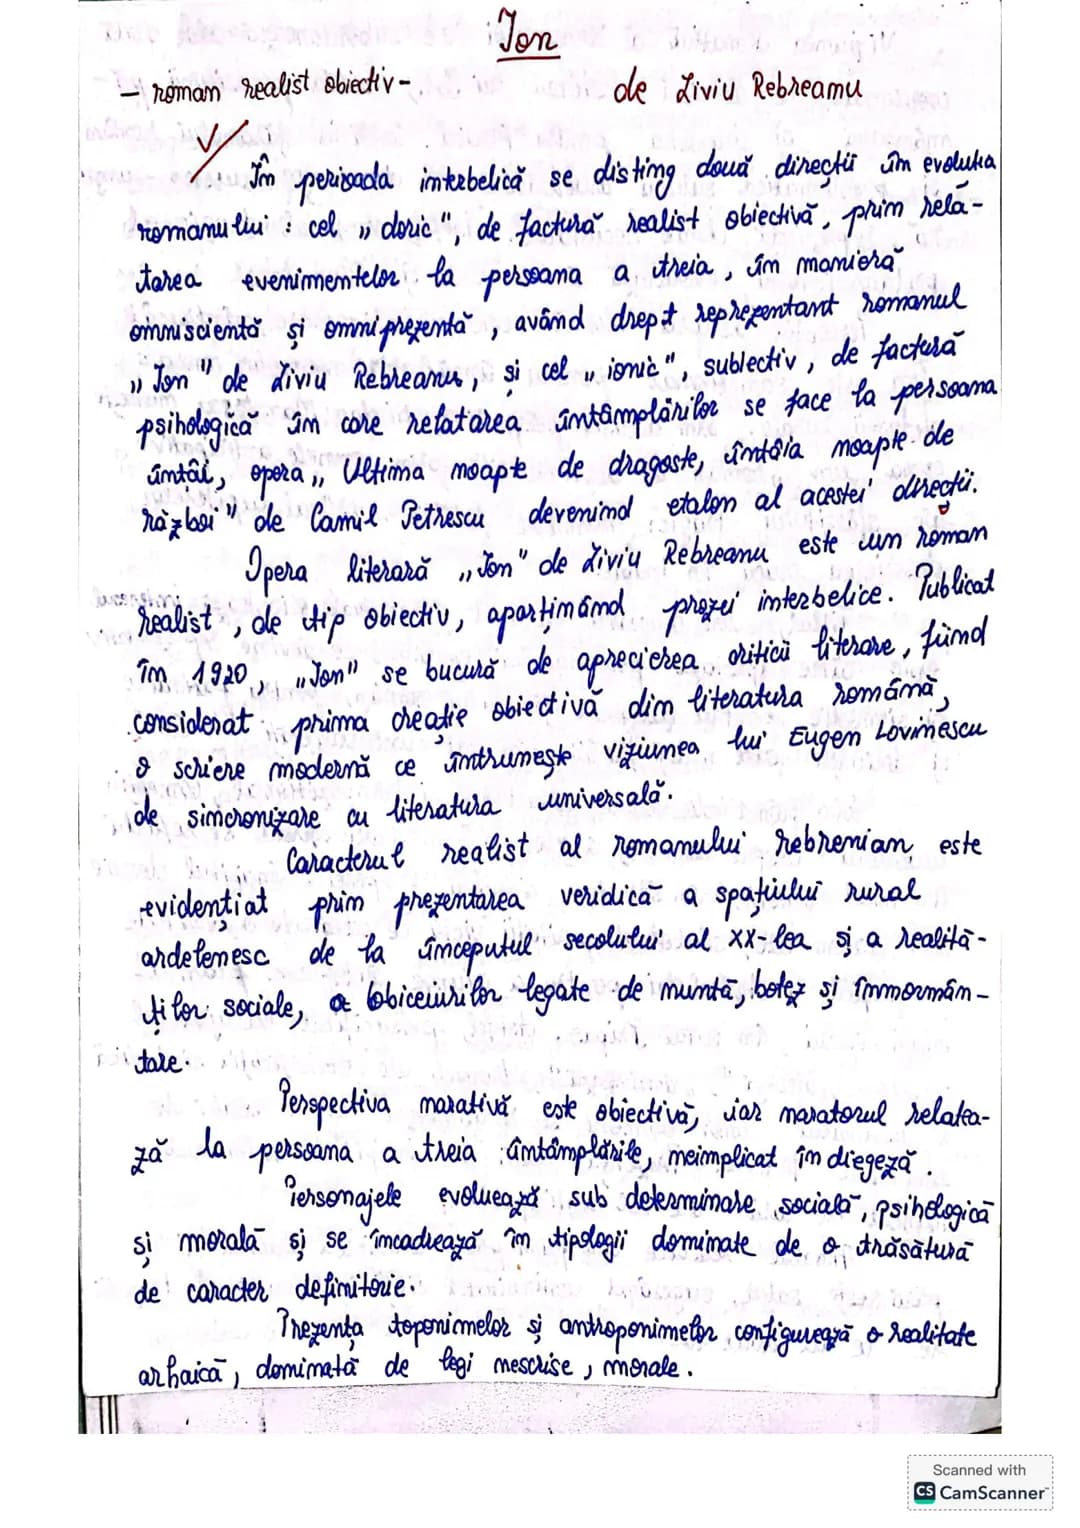 Ion
- roman realist obiectiv -
de Liviu Rebreanu
În perioada interbelică se disting două direcții în evoluția
romanului : cel „doric", de factură realist obiectivă, prin rela-
tarea evenimentelor la persoana a treia, în manieră
omniscientă și omniprezentă, având drept reprezentant romanul
„Ion" de Liviu Rebreanu, și cel „ionic", subiectiv, de factură
psihologică în care relatarea întâmplărilor se face la persoana
întâi, opera „Ultima noapte de dragoste, întâia noapte de
război" de Camil Petrescu devenind etalon al acestei direcții.
Opera literară „Ion" de Liviu Rebreanu este un roman
realist, de tip obiectiv, aparținând prozei interbelice. Publicat
în 1920, „Ion" se bucură de aprecierea criticii literare, fiind
considerat prima creație obiectivă din literatura română,
o scriere modernă ce întrunește viziunea lui Eugen Lovinescu
de sincronizare cu literatura universală.
Caracterul realist al romanului rebrenian este
evidențiat prin prezentarea veridică a spațiului rural
ardelenesc de la începutul secolului al XX-lea și a realită-
ților sociale, a obiceiurilor legate de nuntă, botez și înmormân-
tare.
Perspectiva narativă este obiectivă, iar naratorul relatea-
ză la persoana a treia întâmplările, neimplicat în diegeză.
Personajele evoluează sub determinare socială, psihologică
și morală și se încadrează în tipologii dominate de o trăsătură
de caracter definitorie.
Prezența toponimelor și antroponimelor configurează o realitate
arhaică, dominată de legi nescrise, morale.
Scanned with
CS CamScanner